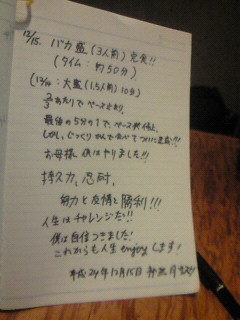 12/15. バカ盛(3人前)完食!!
(タイム:約50分)
(13/14:大盛(1.5人前)10分)
2/3あたりでペース止まり、
最後の5分の1で、ペース終止。
しかし、じっくりかんで食べてついに完食!!
お母様、僕はやりました!!
持久力、忍耐、
努力と友情と勝利!!!
人生はチャレンジだ!!
僕は自信つきました!
これからも人生enjoyします!
平成24年12月15日